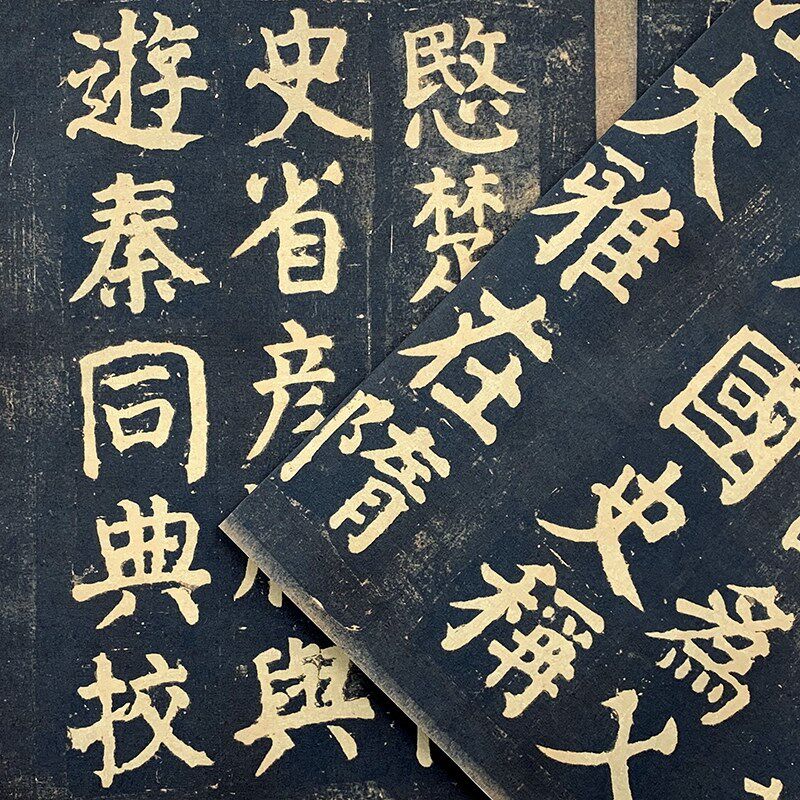 愍楚
史省彥與
遊秦同典校
為十
國史稱
大雅在隋